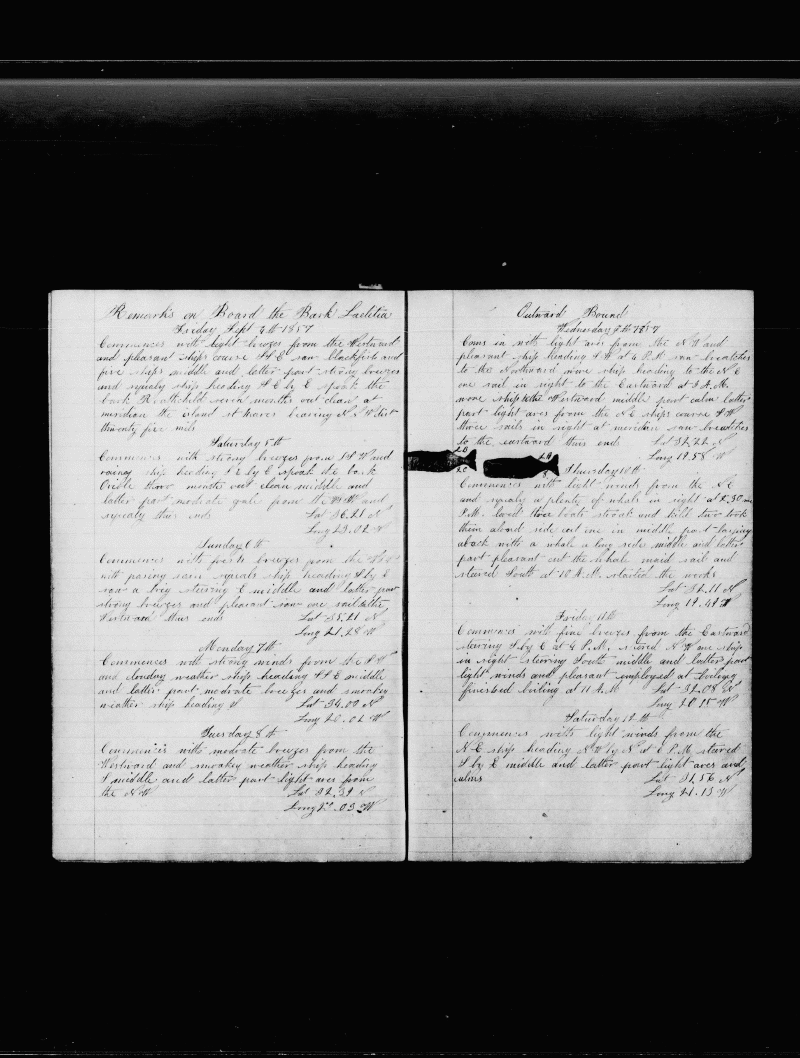 Remarks on Board the Bark Laetitia
Friday Sept 4th 1857
Commences with light breezes from the Westward
and pleasant ships course SSE saw blackfish and
five ships middle and latter part strong breezes
and squaly ship heading SE by E speak the
bark seven months out clean at
meridian the island bearing N N W dist
thirty five mils
Saturday 5th
Commences with strong breezes from SSW and
rainey ship heading SE by E speak the bark
three months out clean middle and
latter part moderate gale from the W and
squaly thus ends Lat 36.21 N
Long 23.02 W
Sunday 6th
Commences with fresh breezes from the
with passing rain squals ship heading S by E
saw a brig steering E middle and latter part
strong breezes and pleasant saw one sail to the
Westward thus ends Lat 35.21 N
Long 21.28 W
Monday 7th
Commences with strong winds from the S W
and cloudy weather ship heading SSE middle
and latter part moderate breezes and smoaky
weather ship heading S Lat 34.00 N
Long 20.02 W
Tuesday 8th
Commences with modrate breezes from the
Westward and smoaky weather ship heading
S middle and latter part light ares from
the N W Lat 32.39 N
Long .03 W
Outward Bound
Wednesday 9th 1857
Coms in with light ares from the N W and
pleasant ship heading S W at 4 P.M. saw breatches
to the Northward wore ship heading to the N E
one sail in sight to the Eastward at 3 A.M.
wore ship to the Westward middle part calm latter
part light ares from the N E ships course SW
three sails in sight at meridian saw breatches
to the eastward thus ends Lat 32.22 N
Long 19.58 W
Thursday 10th
Commences with light winds from the N E
and squaly a plenty of whale in sight at 2.30
P.M. lowd three boats struck and kild two took
them alond side cut one in middle part laying
aback with a whale a long side middle and latter
part pleasant cut the whale maid sail and
steared South at 10 A.M. started the works
Lat 32.11 N
Long 19.49 W
Friday 11th
Commences with fine breezes from the Eastward
stearing S by E at 4 P.M. steared N W one ship
in sight steering South middle and latter part
light winds and pleasant employed at boileing
finished boiling at 11 A.M Lat 32.08 N
Long 20.15 W
Saturday 12th
Commences with light winds from the
N E ship heading N W by N at 6 P.M. steared
S by E middle and latter part light ares and
calms Lat 31.56 N
Long 21.13 W